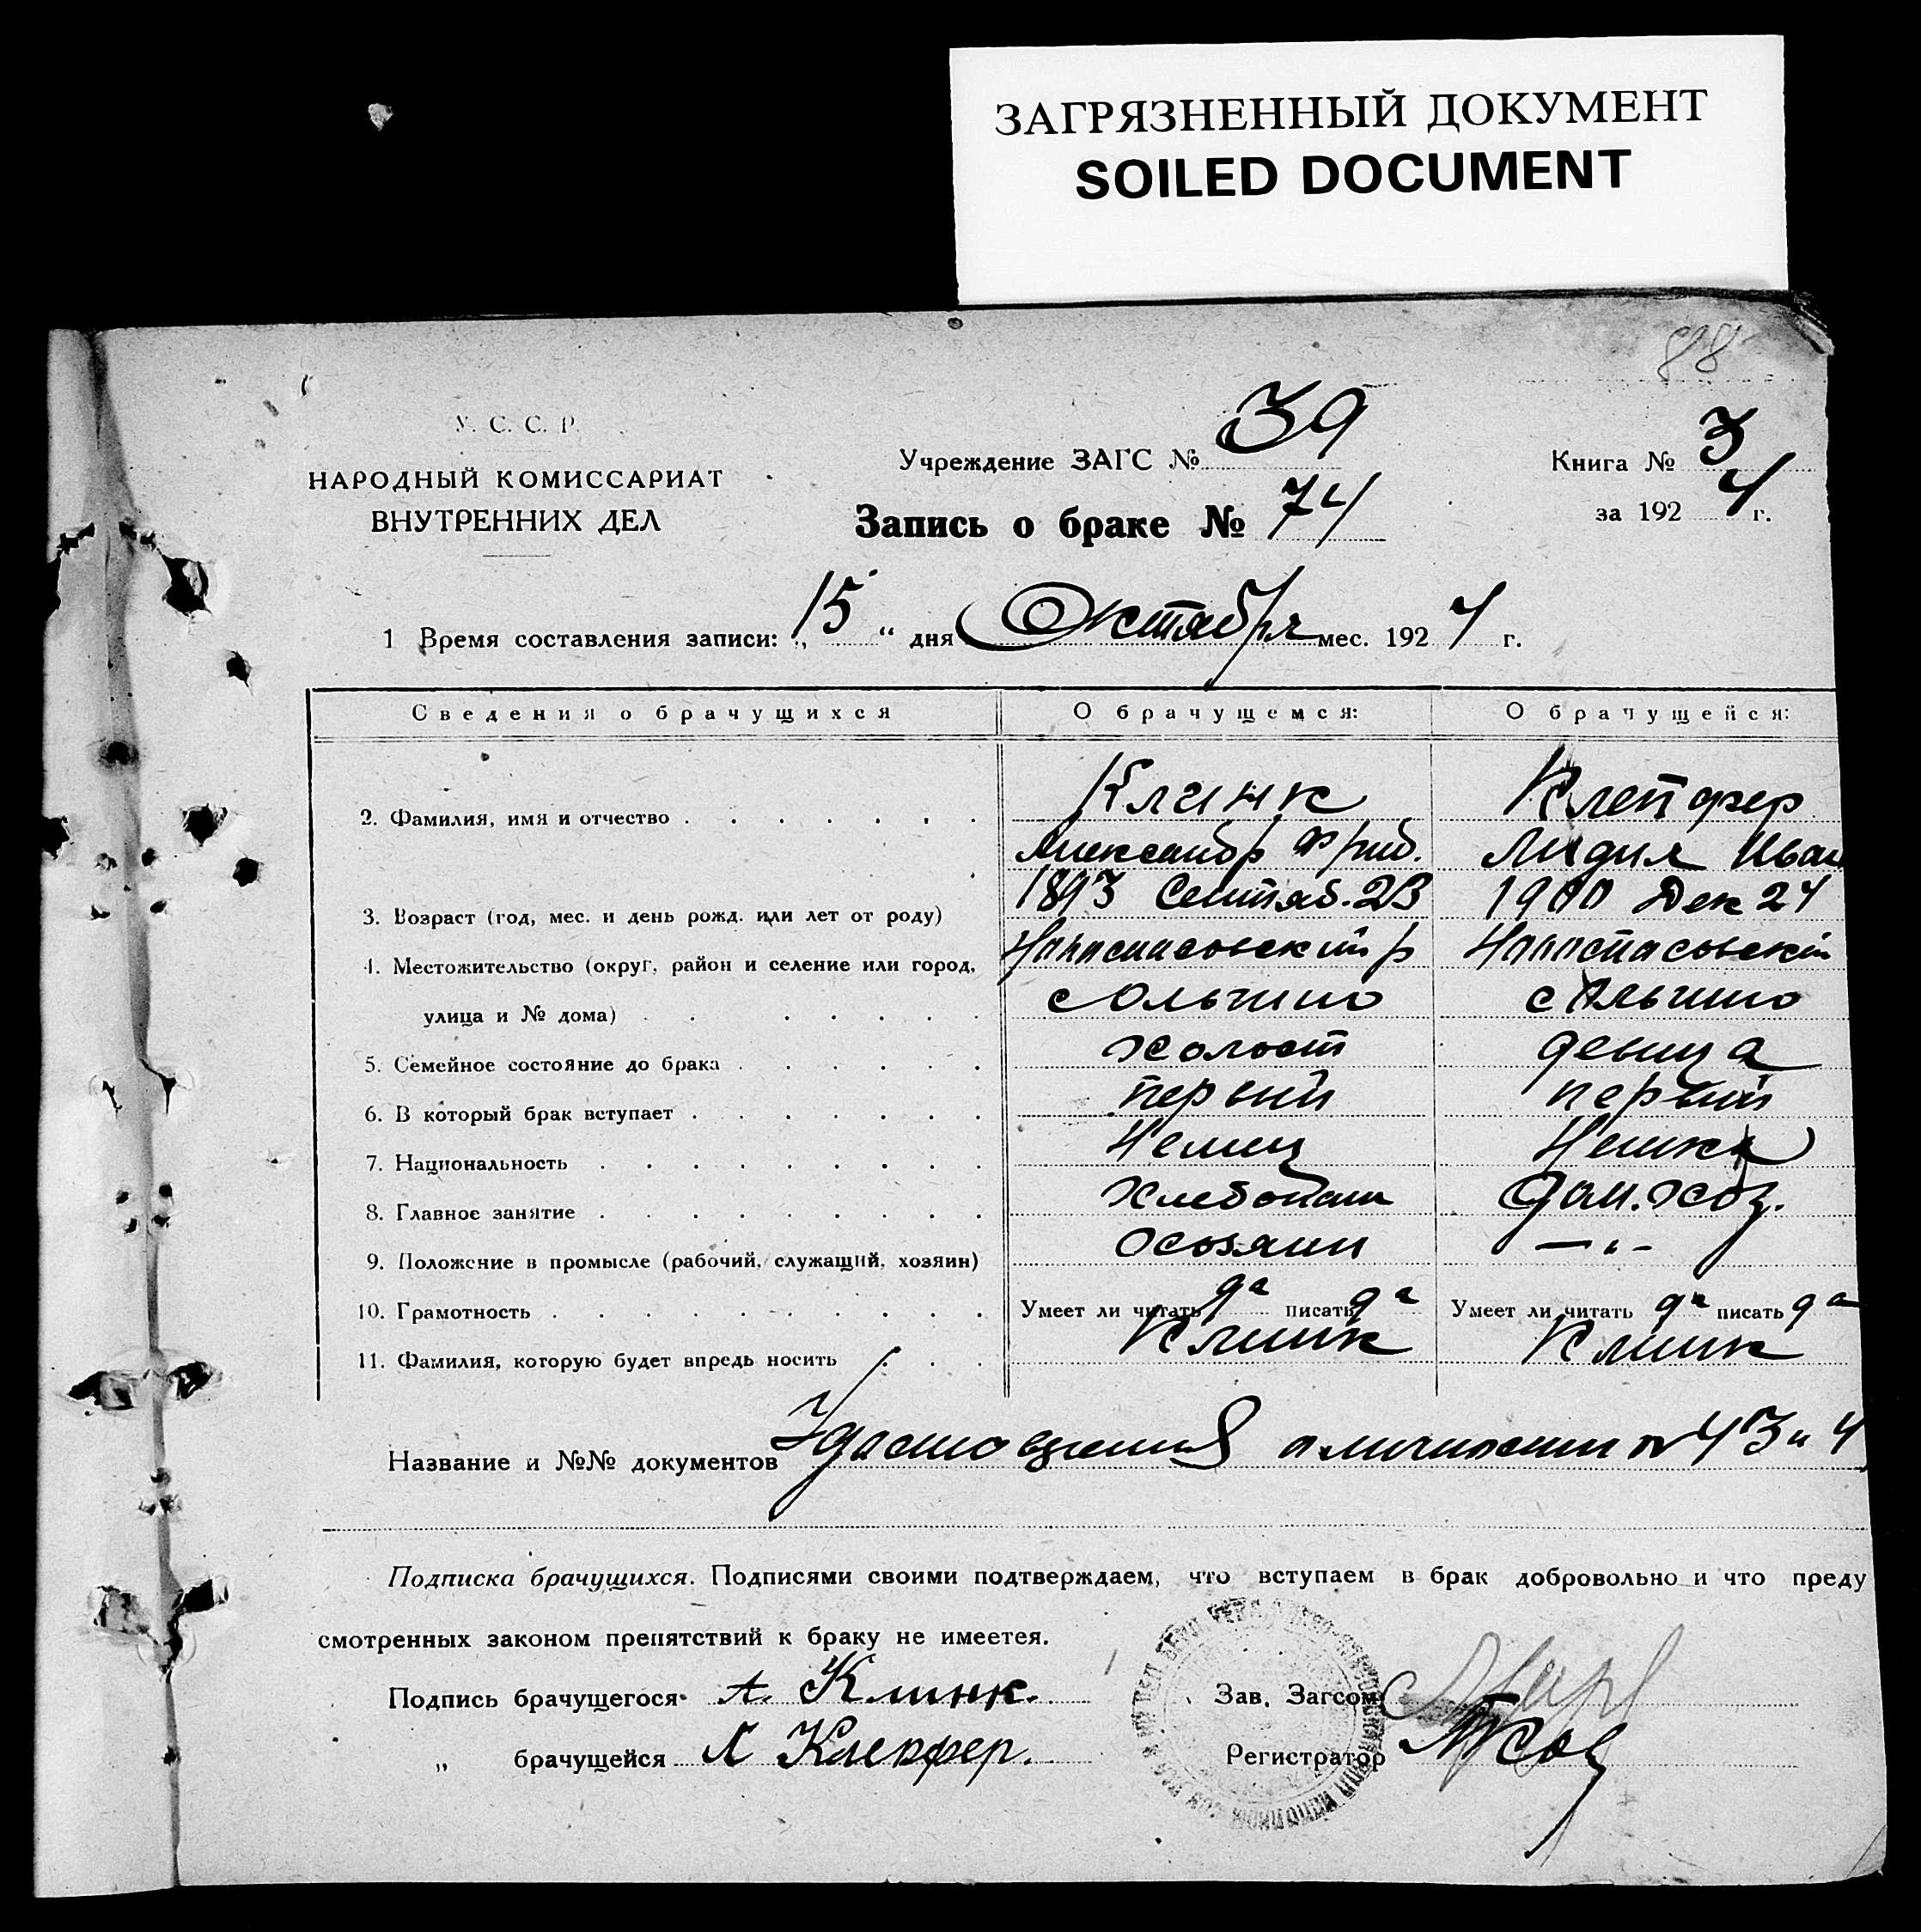 ЗАГРЯЗНЕННЫЙ ДОКУМЕНТ
SOILED DOCUMENT
88
У. С. С. Р.
НАРОДНЫЙ КОМИССАРИАТ
ВНУТРЕННИХ ДЕЛ
Учреждение ЗАГС № 39
Книга № 3
Запись о браке № 74
за 1924 г.
1 Время составления записи: „15“ дня Октября мес. 1924 г.
Сведения о брачущихся О брачущемся: О брачущейся:
Клинк Клепфер
2. Фамилия, имя и отчество
Александр Фрид. Лидия Иван
3. Возраст (год, мес. и день рожд. или лет от роду) 1893 Сентяб. 23 1900 Дек 24
4. Местожительство (округ, район и селение или город,
улица и № дома) с Ольгино с Ольгино
5. Семейное состояние до брака холост девица
6. В который брак вступает первый первый
7. Национальность Немец Немка
8. Главное занятие Хлебопаш Дом. хоз.
9. Положение в промысле (рабочий, служащий, хозяин) — „ –
10. Грамотность Умеет ли читать да писать да Умеет ли читать да писать да
11. Фамилия, которую будет впредь носить Клинк Клинк
Название и №№ документов Удостоверения о личности № 43 и 4
Подписка брачущихся. Подписями своими подтверждаем, что вступаем в брак добровольно и что преду
смотренных законом препятствий к браку не имеетея.
Подпись брачущегося А. Клинк. Зав. Загсом
„ брачущейся Л Клепфер. Регистратор